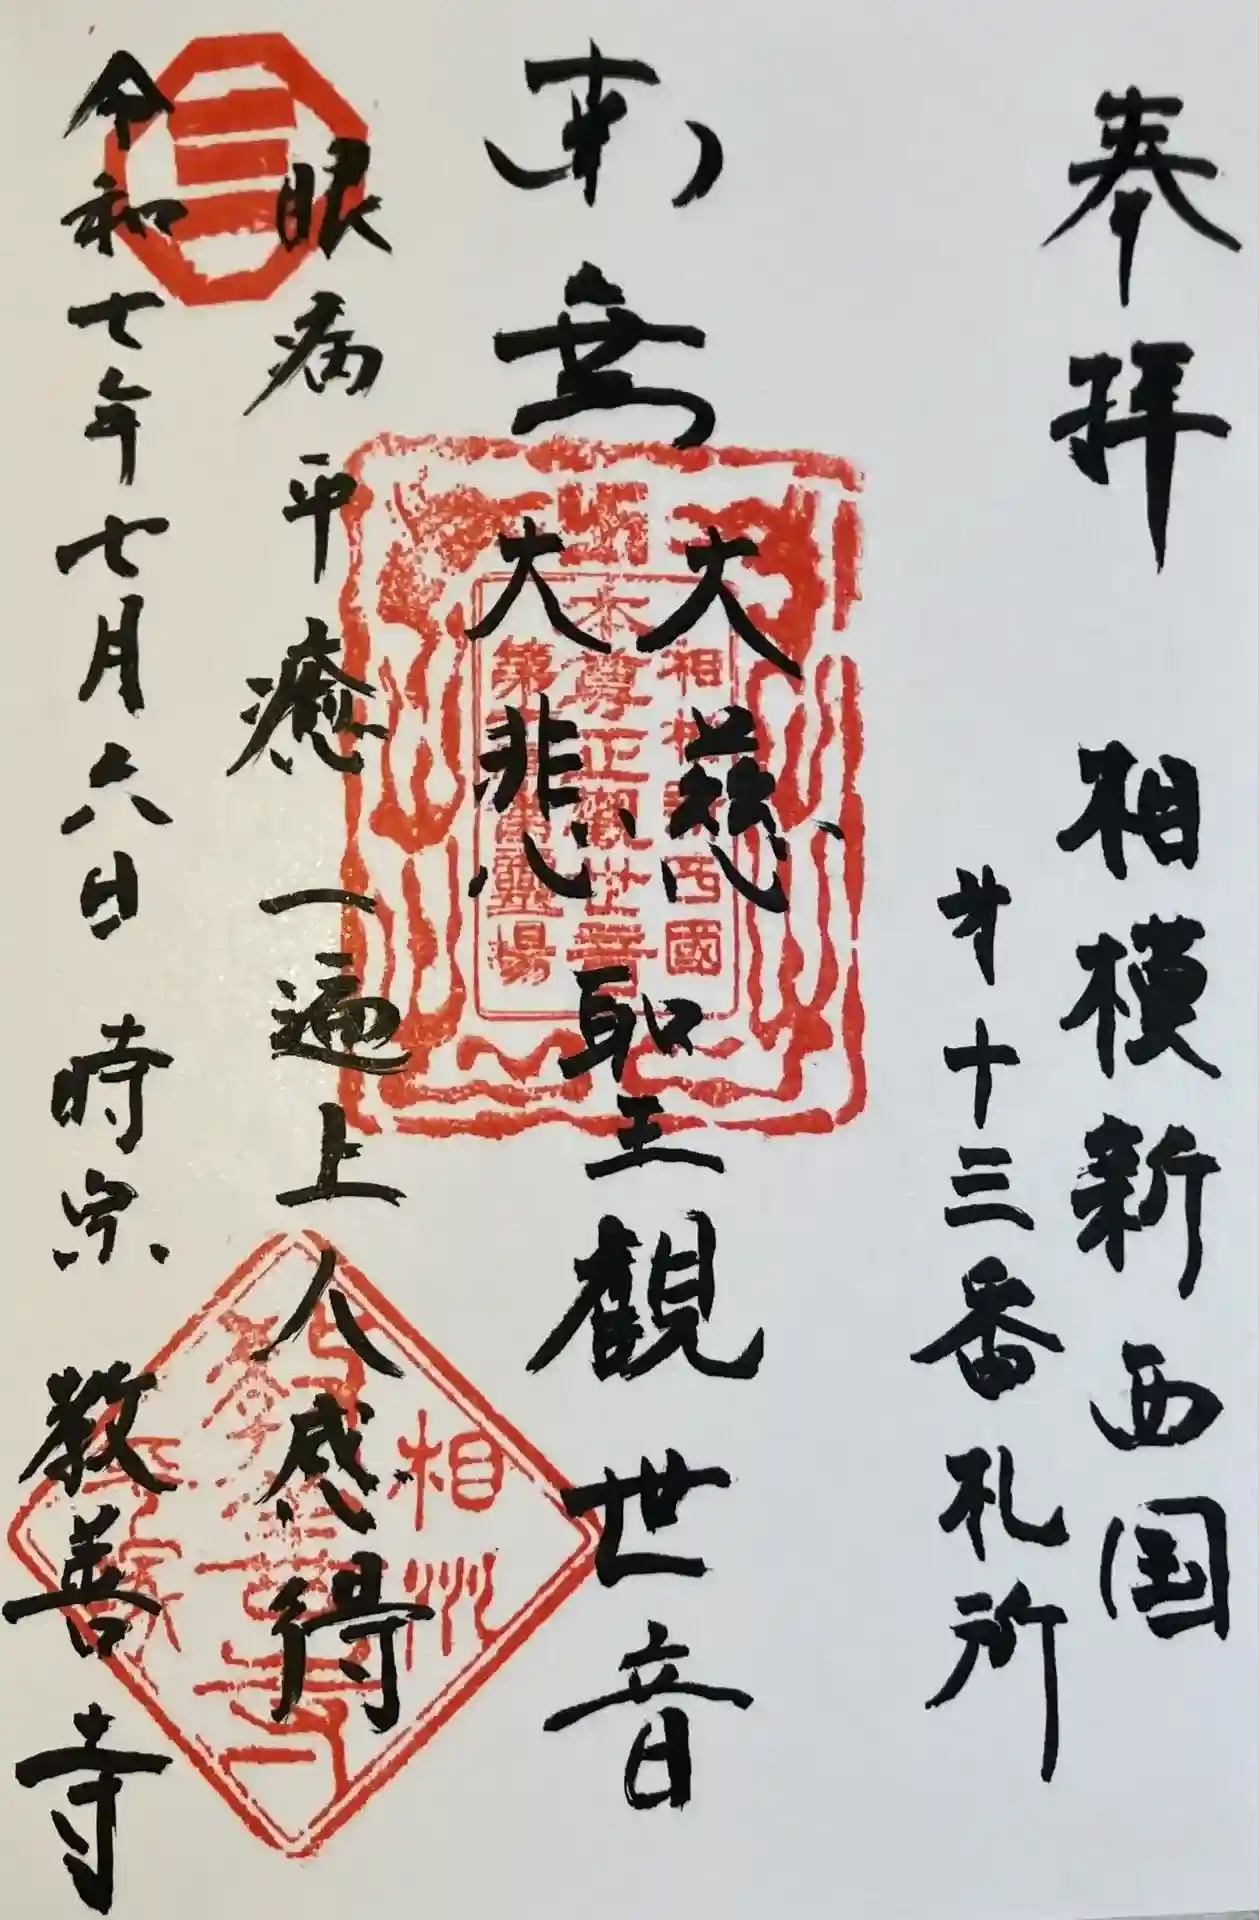 奉拝 相模新西国
㐧十三番札所
南無
大慈
大悲
聖観世音
眼病平癒 一遍上人感得
令和七年七月六日 時宗 教善寺
相模新西國
本尊正觀世音
霊場
相州